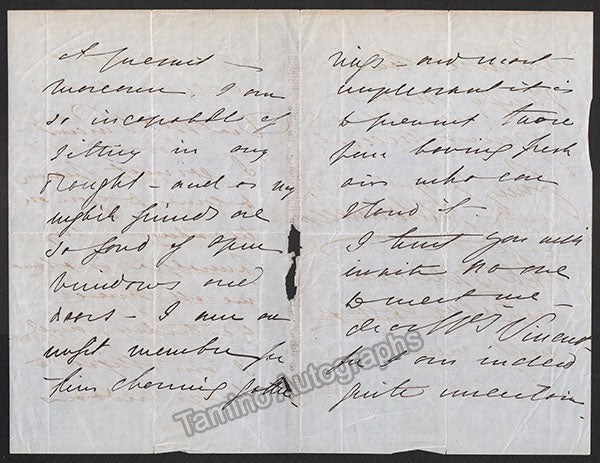 at present —
moreover, I am
so incapable of
sitting in any
draught — and as my
english friends are
so fond of open
windows and
doors — I am an
unfit member for
their charming gathe
rings — and most
unpleasant it is
to prevent those
from having fresh
airs who can
stand it.
I trust you will
invite no one
to meet me —
dear Mrs Vincent
for I am indeed
quite uncertain
Tamino Autographs